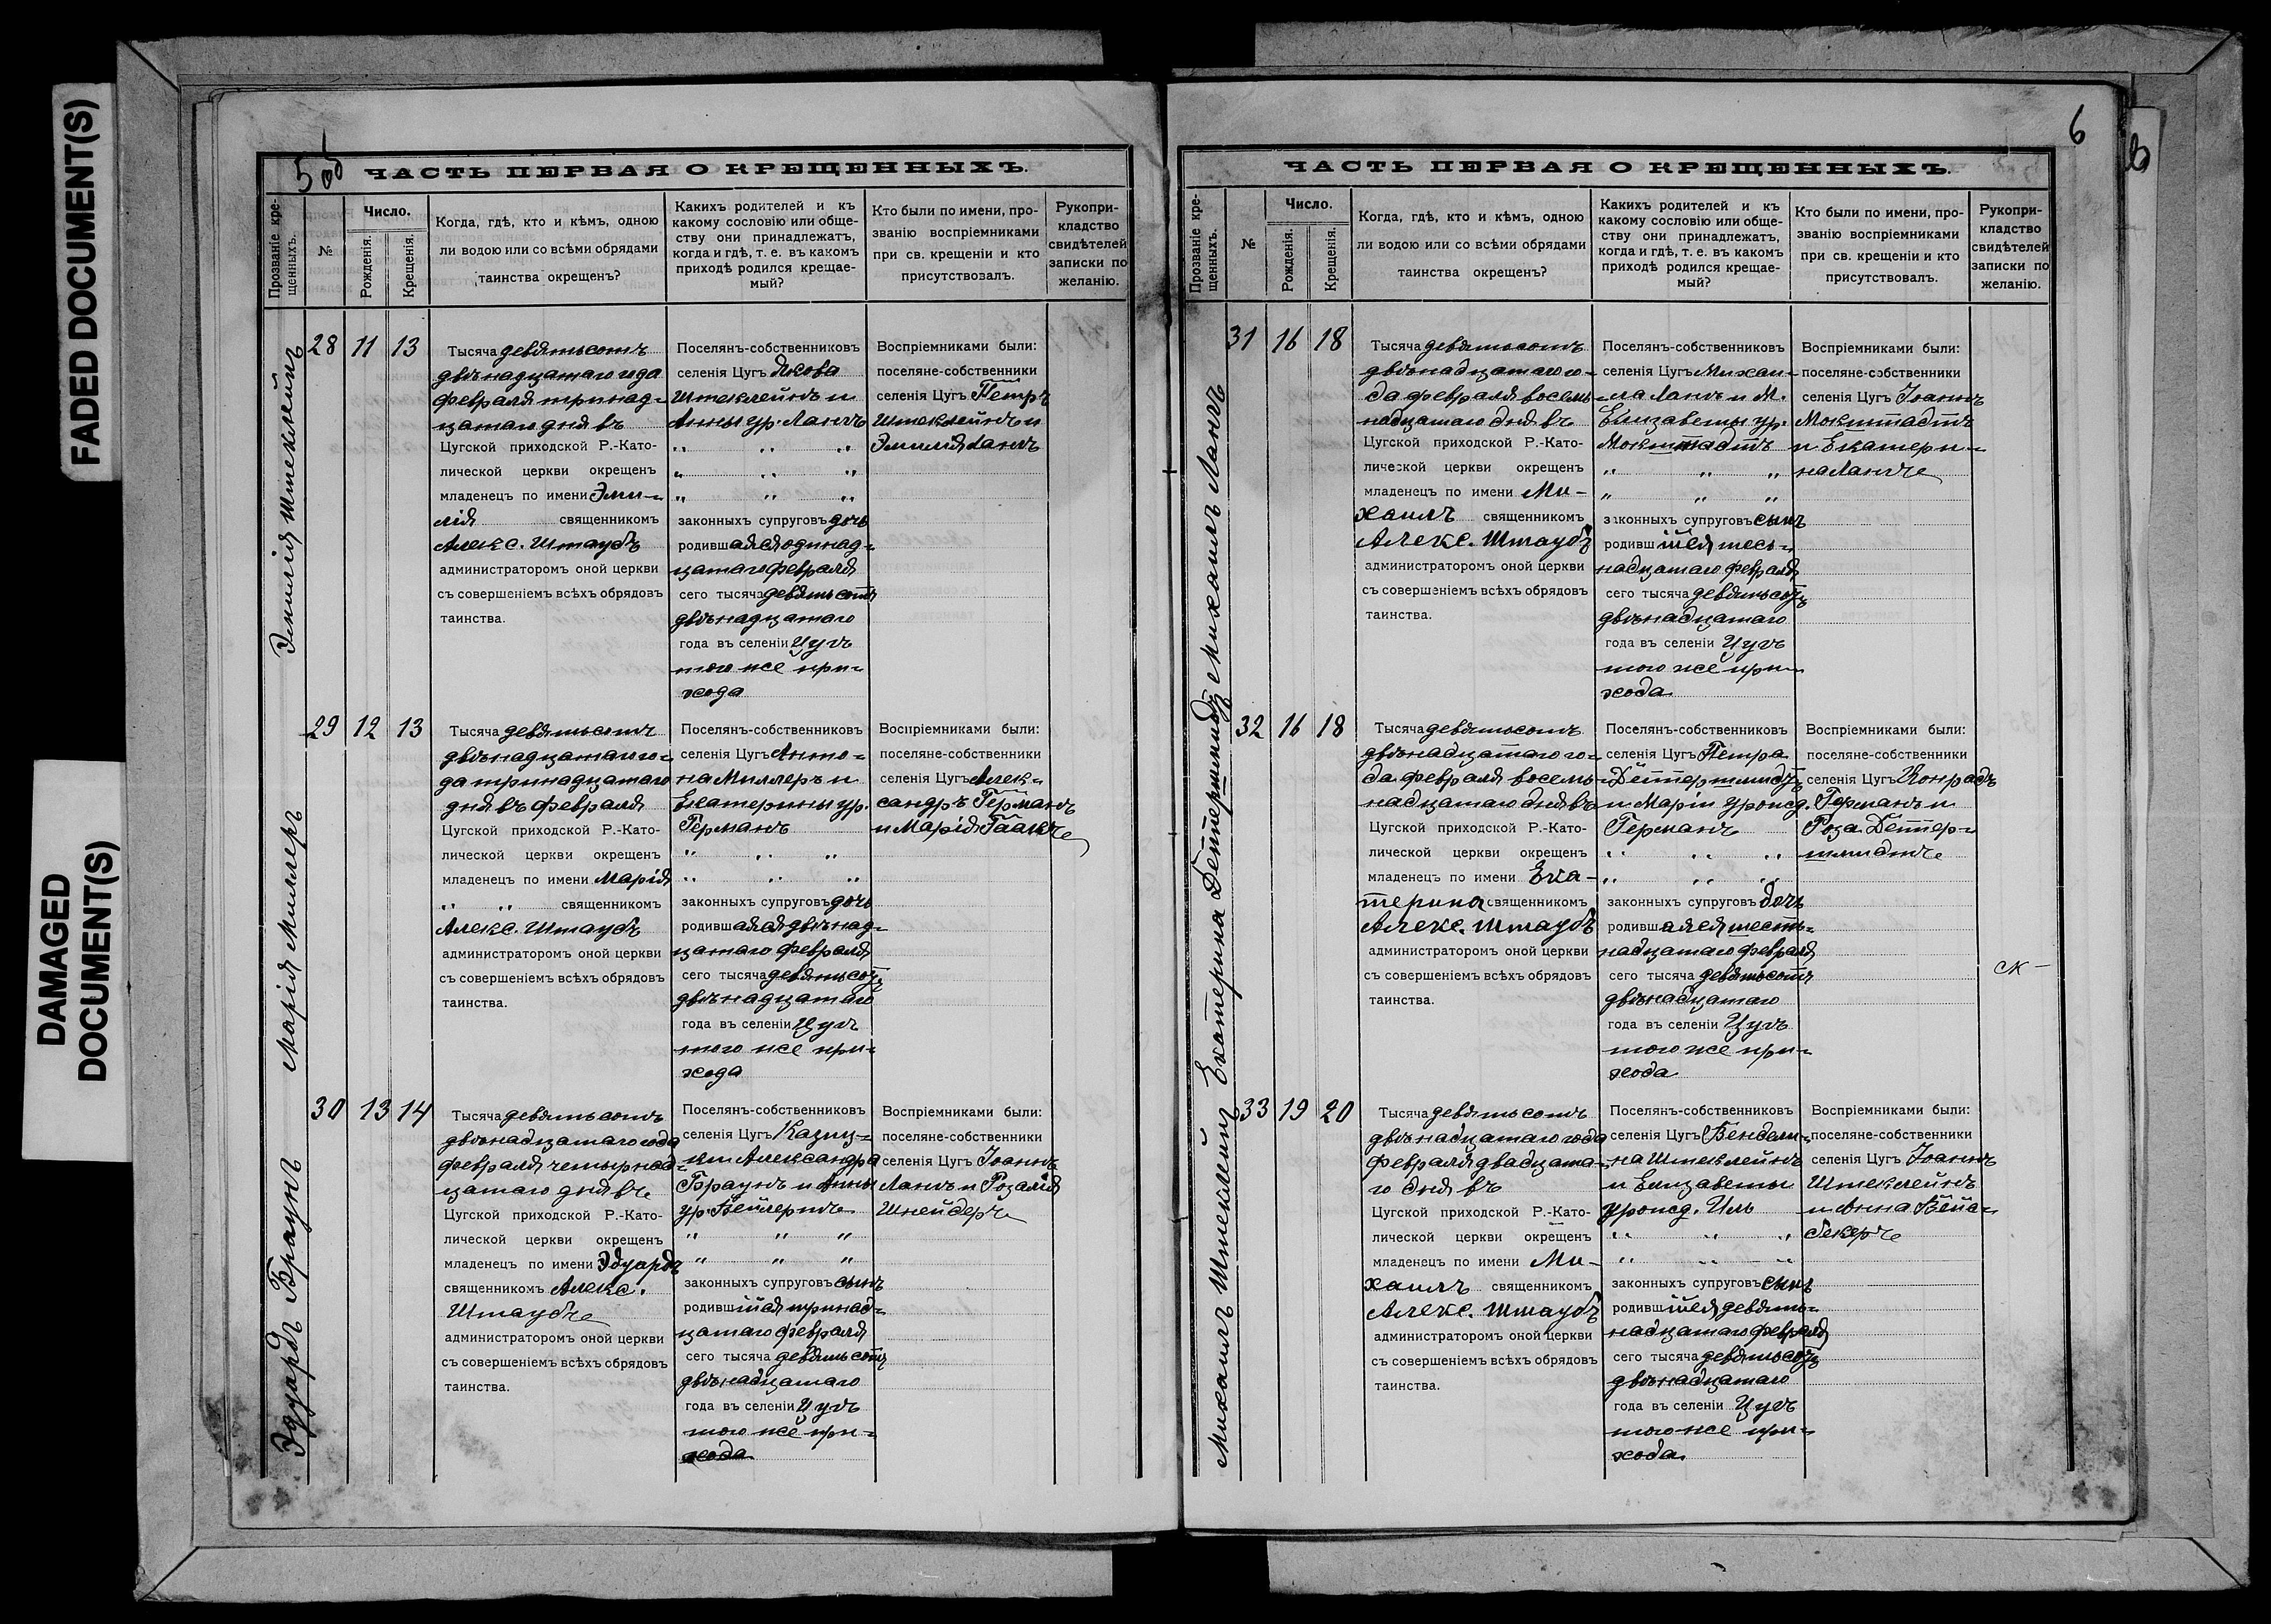 FADED DOCUMENT(S)
DAMAGED
DOCUMENT(S)
5 об
ЧАСТЬ ПЕРВАЯ О КРЕЩЕННЫХЪ.
Прозваніе кре-
щенныхъ.
№
Число.
Рожденія.
Крещенія.
Когда, гдѣ, кто и кѣмъ, одною
ли водою или со всѣми обрядами
таинства окрещенъ?
Какихъ родителей и къ
какому сословію или обще-
ству они принадлежатъ,
когда и гдѣ, т. е. въ какомъ
приходѣ родился крещае-
мый?
Кто были по имени, про-
званію воспріемниками
при св. крещеніи и кто
присутствовалъ.
Рукопри-
кладство
свидѣтелей
записки по
желанію.
Эмилія Штеклейнъ
28 11 13
Тысяча девятьсотъ
двѣнадцатаго года
февраля тринад-
цатаго дня въ
Цугской приходской Р.-Като-
лической церкви окрещенъ
младенецъ по имени Эми-
лія священникомъ
Алекс. Штаубъ
администраторомъ оной церкви
съ совершеніемъ всѣхъ обрядовъ
таинства.
Поселянъ-собственниковъ
селенія Цугъ Якова
Штеклейнъ и
Анны ур. Лангъ
" " "
" " "
" " "
законныхъ супруговъ дочь
родившаяся одинад-
цатаго февраля
сего тысяча девятьсотъ
двѣнадцатаго
года въ селеніи Цугъ
того же при-
хода
Воспріемниками были:
поселяне-собственники
селенія Цугъ Петръ
Штеклейнъ и
Эмилія Лангъ
Марія Миллеръ
29 12 13
Тысяча девятьсотъ
двѣнадцатаго го-
да тринадцатаго
дня въ февраля
Цугской приходской Р.-Като-
лической церкви окрещенъ
младенецъ по имени Марія
" " священникомъ
Алекс. Штаубъ
администраторомъ оной церкви
съ совершеніемъ всѣхъ обрядовъ
таинства.
Поселянъ-собственниковъ
селенія Цугъ Анто-
на Миллеръ и
Екатерины ур.
Германъ
" " "
" " "
законныхъ супруговъ дочь
родившаяся двѣнад-
цатаго февраля
сего тысяча девятьсотъ
двѣнадцатаго
года въ селеніи Цугъ
того же при-
хода
Воспріемниками были:
поселяне-собственники
селенія Цугъ Алек-
сандръ Германъ
и Марія Гаагъ
Эдуардъ Браунъ
30 13 14
Тысяча девятьсотъ
двѣнадцатаго года
февраля четырнад-
цатаго дня въ
Цугской приходской Р.-Като-
лической церкви окрещенъ
младенецъ по имени Эдуардъ
священникомъ Алекс.
Штаубъ
администраторомъ оной церкви
съ совершеніемъ всѣхъ обрядовъ
таинства.
Поселянъ-собственниковъ
селенія Цугъ
Александра
Браунъ и Анны
ур.
" " "
" " "
законныхъ супруговъ сынъ
родившійся тринад-
цатаго февраля
сего тысяча девятьсотъ
двѣнадцатаго
года въ селеніи Цугъ
того же при-
хода
Воспріемниками были:
поселяне-собственники
селенія Цугъ Іоаннъ
Лангъ и Розалія
Шнейдеръ
6
ЧАСТЬ ПЕРВАЯ О КРЕЩЕННЫХЪ.
Прозваніе кре-
щенныхъ.
№
Число.
Рожденія.
Крещенія.
Когда, гдѣ, кто и кѣмъ, одною
ли водою или со всѣми обрядами
таинства окрещенъ?
Какихъ родителей и къ
какому сословію или обще-
ству они принадлежатъ,
когда и гдѣ, т. е. въ какомъ
приходѣ родился крещае-
мый?
Кто были по имени, про-
званію воспріемниками
при св. крещеніи и кто
присутствовалъ.
Рукопри-
кладство
свидѣтелей
записки по
желанію.
Михаилъ Лангъ
31 16 18
Тысяча девятьсотъ
двѣнадцатаго го-
да февраля восем-
надцатаго дня въ
Цугской приходской Р.-Като-
лической церкви окрещенъ
младенецъ по имени Ми-
хаилъ священникомъ
Алекс. Штаубъ
администраторомъ оной церкви
съ совершеніемъ всѣхъ обрядовъ
таинства.
Поселянъ-собственниковъ
селенія Цугъ Михаи-
ла Лангъ и М.
Елизаветы ур.
Мокштадтъ
" " "
" " "
законныхъ супруговъ сынъ
родившійся шест-
надцатаго февраля
сего тысяча девятьсотъ
двѣнадцатаго
года въ селеніи Цугъ
того же при-
хода
Воспріемниками были:
поселяне-собственники
селенія Цугъ Іоаннъ
Мокштадтъ
и Екатери-
на Лангъ
Екатерина Деттершмидтъ
32 16 18
Тысяча девятьсотъ
двѣнадцатаго го-
да февраля восем-
надцатаго дня въ
Цугской приходской Р.-Като-
лической церкви окрещенъ
младенецъ по имени Ека-
терина священникомъ
Алекс. Штаубъ
администраторомъ оной церкви
съ совершеніемъ всѣхъ обрядовъ
таинства.
Поселянъ-собственниковъ
селенія Цугъ Петра
Деттершмидтъ
и Маріи урожд.
Германъ
" " "
" " "
законныхъ супруговъ дочь
родившаяся шест-
надцатаго февраля
сего тысяча девятьсотъ
двѣнадцатаго
года въ селеніи Цугъ
того же при-
хода
Воспріемниками были:
поселяне-собственники
селенія Цугъ Конрадъ
Германъ и
Роза Деттер-
шмидтъ
Михаилъ Штеклейнъ
33 19 20
Тысяча девятьсотъ
двѣнадцатаго года
февраля двадцата-
го дня въ
Цугской приходской Р.-Като-
лической церкви окрещенъ
младенецъ по имени Ми-
хаилъ священникомъ
Алекс. Штаубъ
администраторомъ оной церкви
съ совершеніемъ всѣхъ обрядовъ
таинства.
Поселянъ-собственниковъ
селенія Цугъ Вендели-
на Штеклейнъ
и Елизаветы
урожд. Иль
" " "
" " "
законныхъ супруговъ сынъ
родившійся девят-
надцатаго февраля
сего тысяча девятьсотъ
двѣнадцатаго
года въ селеніи Цугъ
того же при-
хода
Воспріемниками были:
поселяне-собственники
селенія Цугъ Іоаннъ
Штеклейнъ
и Анна Вейс-
бекеръ